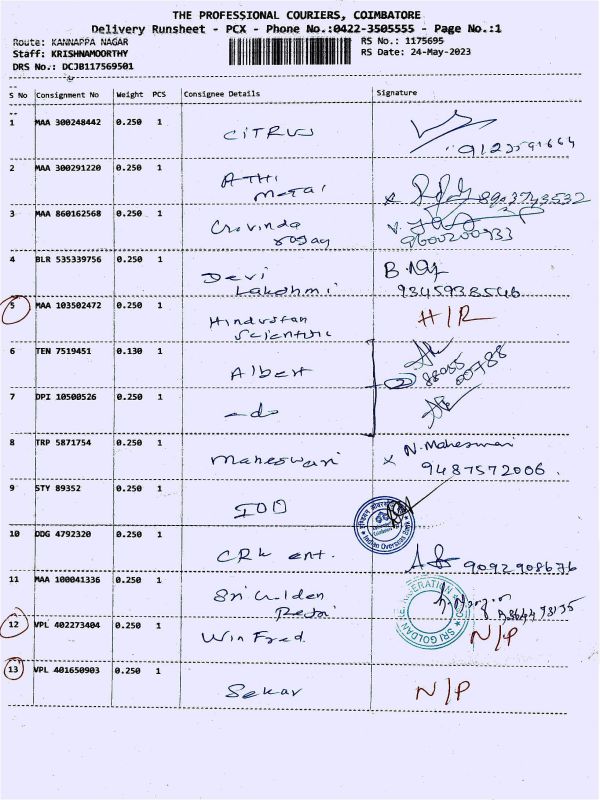 THE PROFESSIONAL COURIERS, COIMBATORE
Delivery Runsheet - PCX - Phone No.:0422-3505555 - Page No.:1
Route: KANNAPPA NAGAR
RS No.: 1175695
Staff: KRISHNAMOORTHY
RS Date: 24-May-2023
DRS No.: DCJB117569501
S No Consignment No Weight PCS Consignee Details Signature
1 MAA 300248442 0.250 1 CITRUS
2 MAA 300291220 0.250 1 ATHI
metal
x 8903743532
3 MAA 860162568 0.250 1 Govinda
9600200933
4 BLR 535339756 0.250 1 Devi
Lakshmi
9345938546
5 MAA 103502472 0.250 1 Hindustan
Scientific
H/R
6 TEN 7519451 0.130 1 Albert
2
7 DPI 10500526 0.250 1 -do
8 TRP 5871754 0.250 1 Maheswari
x N. Maheswari
9487572006.
9 STY 89352 0.250 1 IOO
Indian Overseas Bank
10 DDG 4792320 0.250 1 CRK ent.
9092908676
11 MAA 100041336 0.250 1 Sri
SRI GOLDAN
12 VPL 402273404 0.250 1 Winfred
N/P
13 VPL 401650903 0.250 1 Sekar
N/P